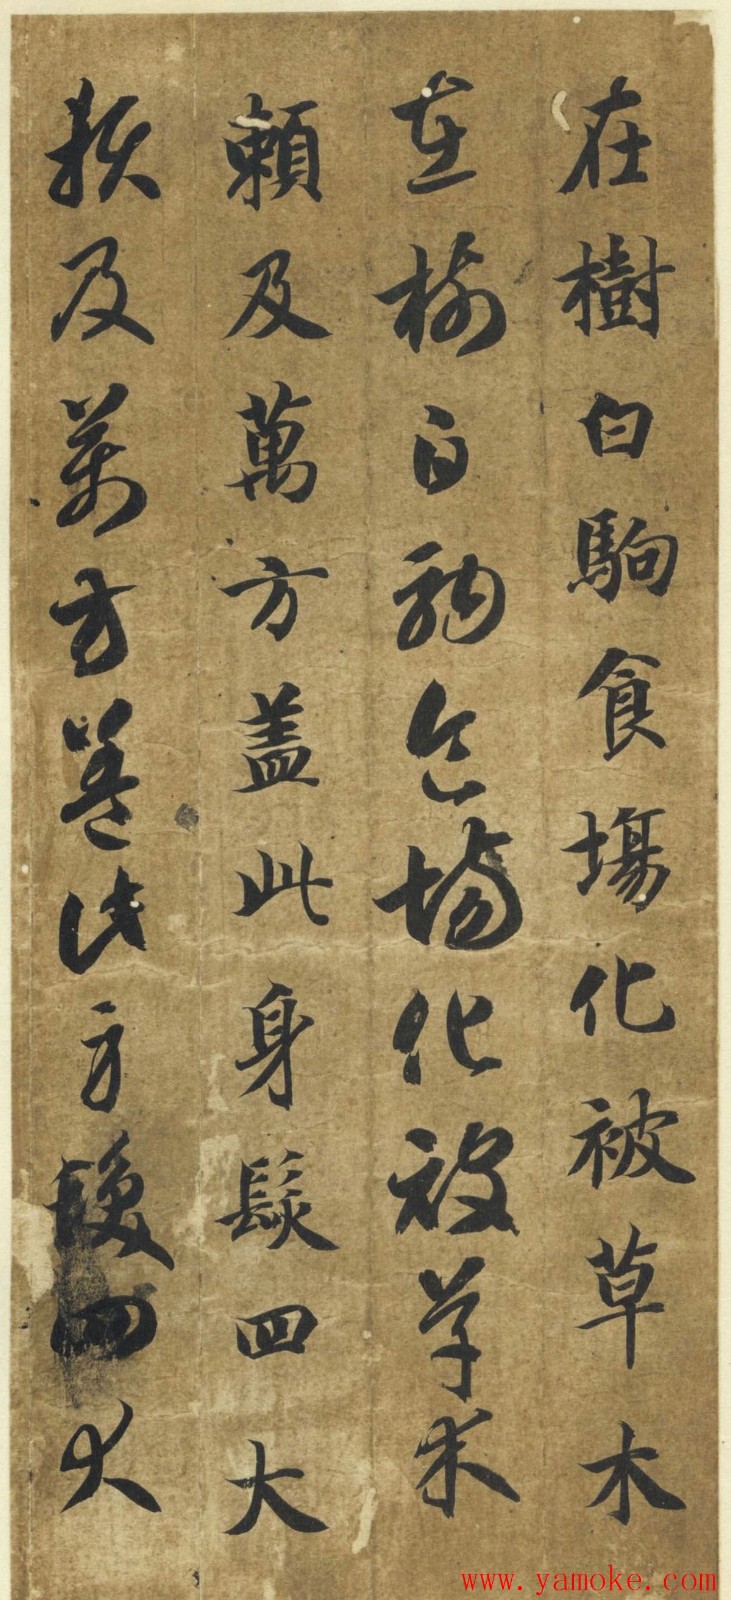 在樹白駒食塲化被草木
在樹白駒食場化被草木
頼及萬方盖此身髮四大
頼及萬方盖此身髮四大
www.yamoke.com